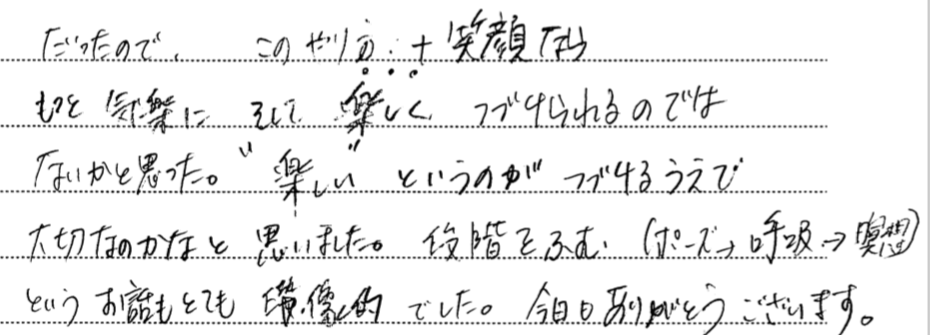 だったので、 このやり方 + 笑顔なら
もっと気楽に そして 楽しく つづけられるのでは
ないかと思った。 "楽しい" というのが つづけるうえで
大切なのかなと 思いました。 段階をふむ (ポーズ→呼吸→瞑想)
というお話もとても 的 でした。 今日もありがとうございます。